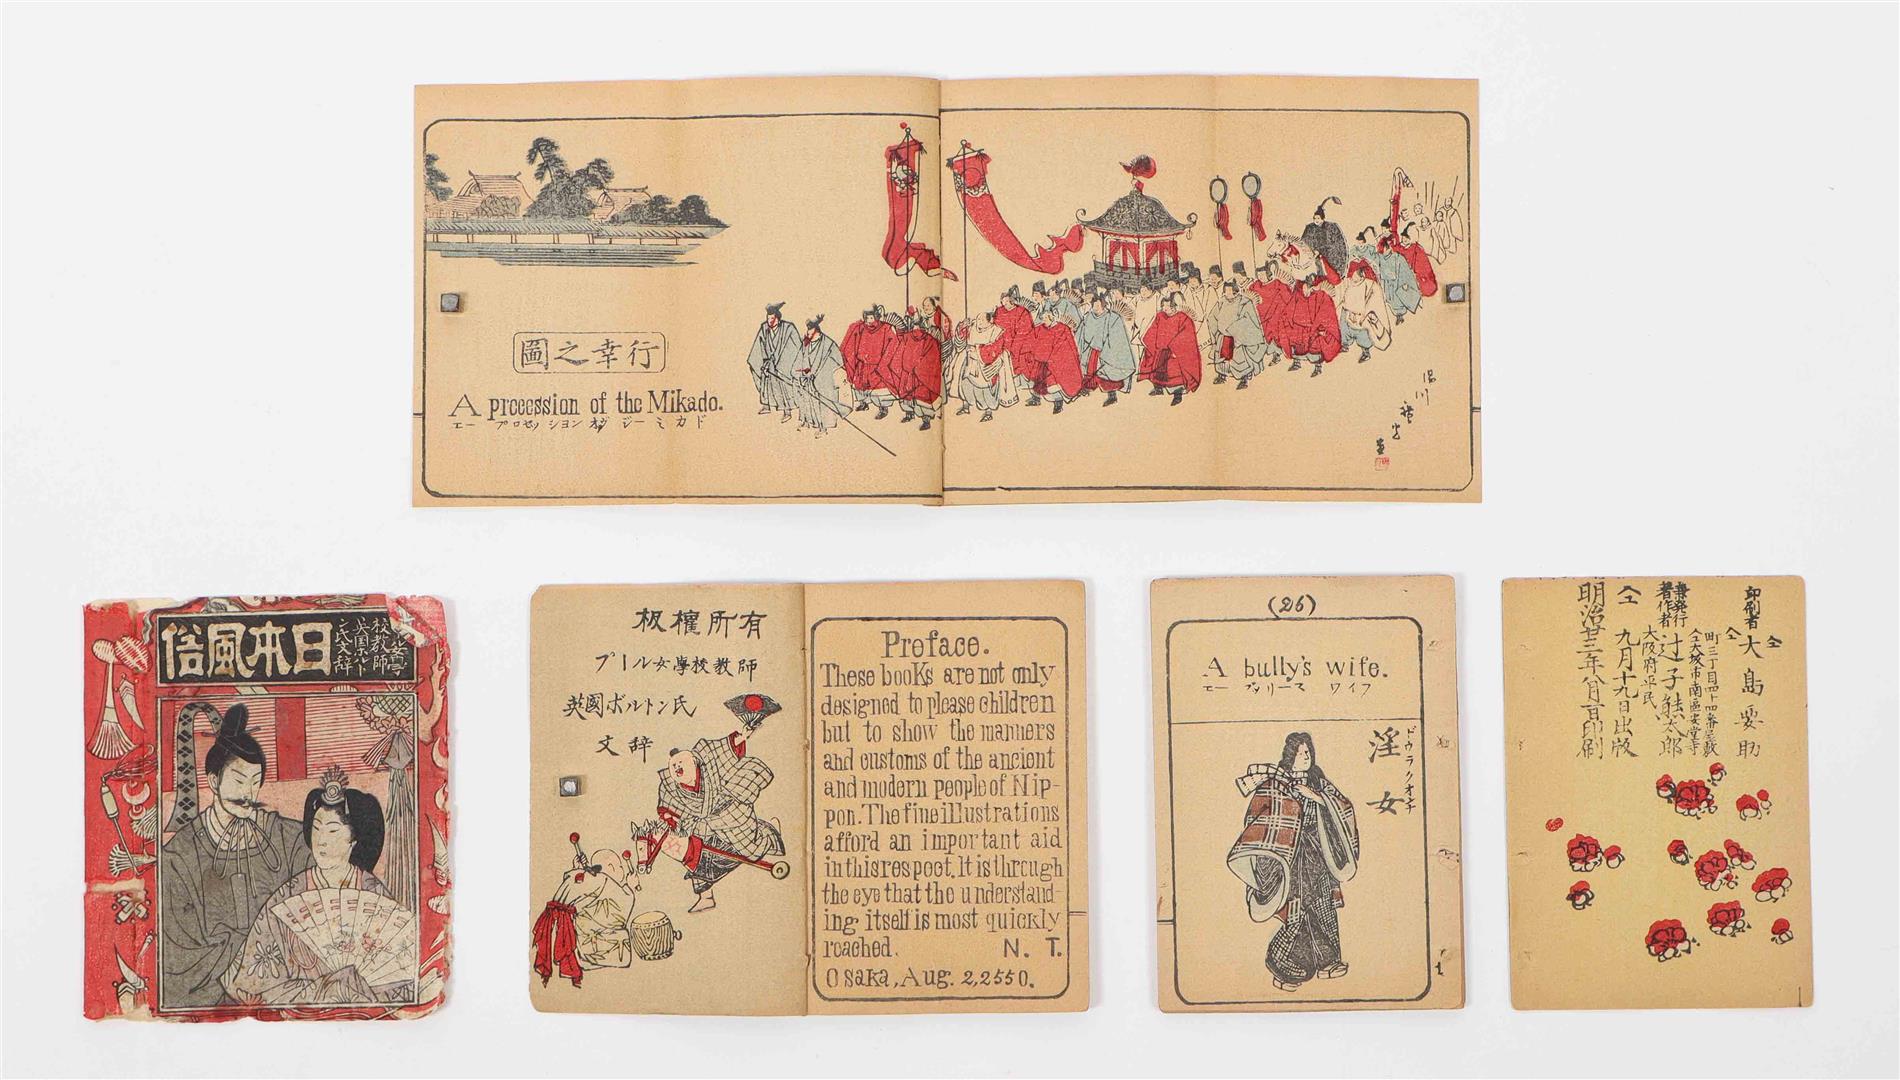 行幸之圖
A procession of the Mikado.
エー プロセッション オヴ ジー ミカド
日本風俗
校教師
英国ボルト
ン氏文辞
板權所有
プール女學校教師
英國ボルトン氏
文辞
Preface.
These books are not only
designed to please children
but to show the manners
and customs of the ancient
and modern people of Nip-
pon. The fine illustrations
afford an important aid
in this respect. It is through
the eye that the understand-
ing itself is most quickly
reached. N. T.
Osaka, Aug. 2, 2550.
(26)
A bully's wife.
エー ブッリース ワイフ
ドウラクオンナ
淫女
印刷者 仝 大島要助
兼発行
著作者 仝 辻子触太郎
仝大坂市南區安堂寺
町三丁目四十四番屋敷
大阪府平民
仝 九月十九日出版
明治廿三年八月二日印刷